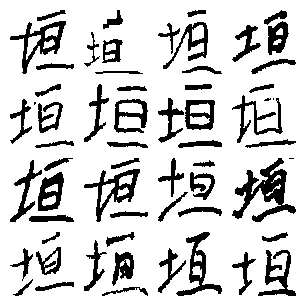 垣垣垣垣
垣垣垣垣
垣垣垣垣
垣垣垣垣